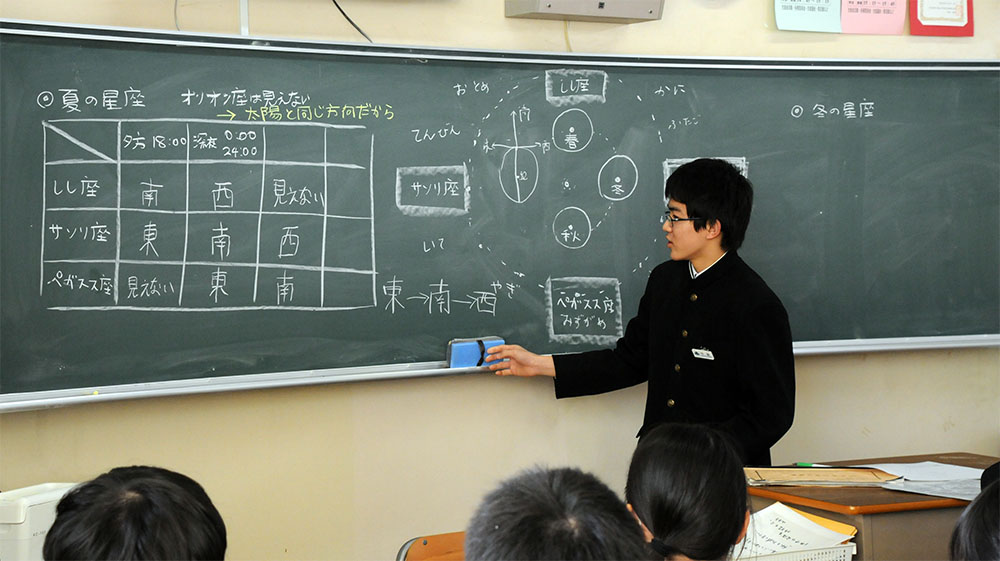 ◎夏の星座 オリオン座は見えない
→ 太陽と同じ方向だから
夕方 18:00 深夜 0:00
24:00
しし座 南 西 見えない
サソリ座 東 南 西
ペガスス座 見えない 東 南
東→南→西
おとめ
しし座
かに
てんびん
ふたご
南
東 西
春
サソリ座
冬
いて
秋
やぎ
ペガスス座
みずがめ
◎冬の星座